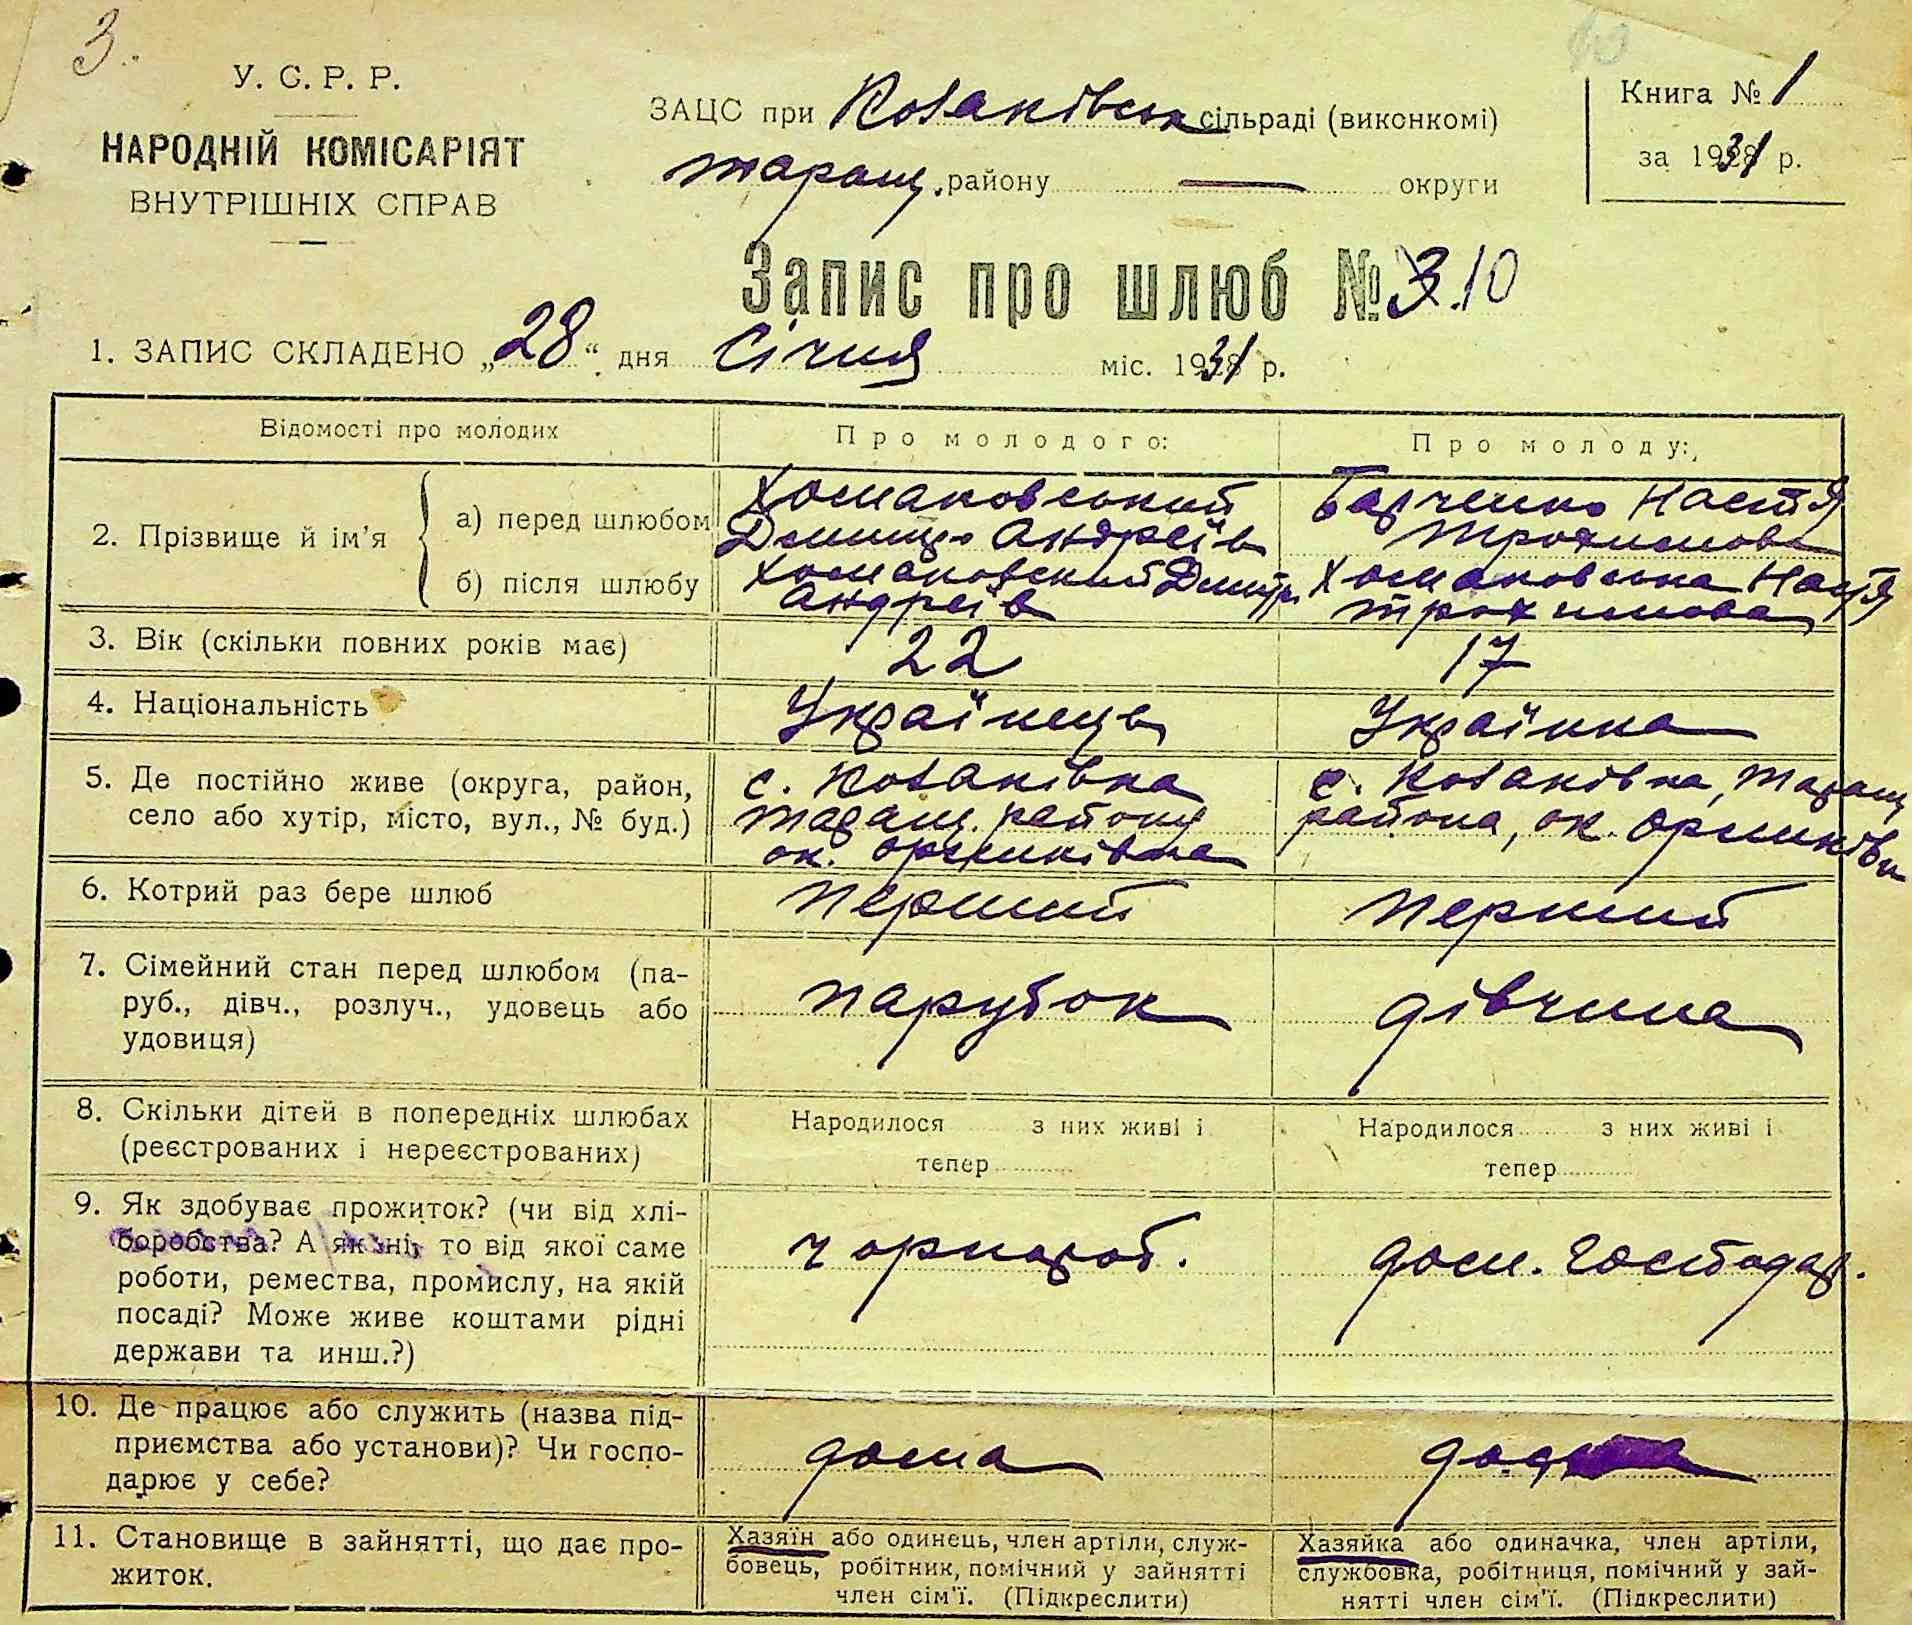 3.
У. С. Р. Р.
НАРОДНІЙ КОМІСАРІЯТ
ВНУТРІШНІХ СПРАВ
ЗАЦС при Козаківськ сільраді (виконкомі)
Таращ. району — округи
Книга № 1
за 1931 р.
Запис про шлюб № 3.10
1. ЗАПИС СКЛАДЕНО „28“ дня Січня міс. 1931 р.
Відомості про молодих
Про молодого:
Про молоду:
2. Прізвище й ім’я
а) перед шлюбом
Хомаковський
Дмитро Андреїв
Барченко Настя
Трохимова
б) після шлюбу
Хомаковский Дмитр
Андреїв
Хомаковська Настя
Трохимова
3. Вік (скільки повних років має)
22
17
4. Національність
Українець
Українка
5. Де постійно живе (округа, район,
село або хутір, місто, вул., № буд.)
с. Козаківка
Таращ. району
ок.
с. Козаківка, Таращ
района, ок.
6. Котрий раз бере шлюб
Перший
Перший
7. Сімейний стан перед шлюбом (па-
руб., дівч., розлуч., удовець або
удовиця)
парубок
дівчина
8. Скільки дітей в попередніх шлюбах
(реєстрованих і нереєстрованих)
Народилося з них живі і
тепер
Народилося з них живі і
тепер
9. Як здобуває прожиток? (чи від хлі-
боробства? А як ні, то від якої саме
роботи, ремества, промислу, на якій
посаді? Може живе коштами рідні
держави та инш.?)
чорнороб.
дом. господар.
10. Де працює або служить (назва під-
приємства або установи)? Чи госпо-
дарює у себе?
дома
11. Становище в зайнятті, що дає про-
житок.
Хазяїн або одинець, член артіли, служ-
бовець, робітник, помічний у зайнятті
член сім’ї. (Підкреслити)
Хазяйка або одиначка, член артіли,
службовка, робітниця, помічний у зай-
нятті член сім’ї. (Підкреслити)